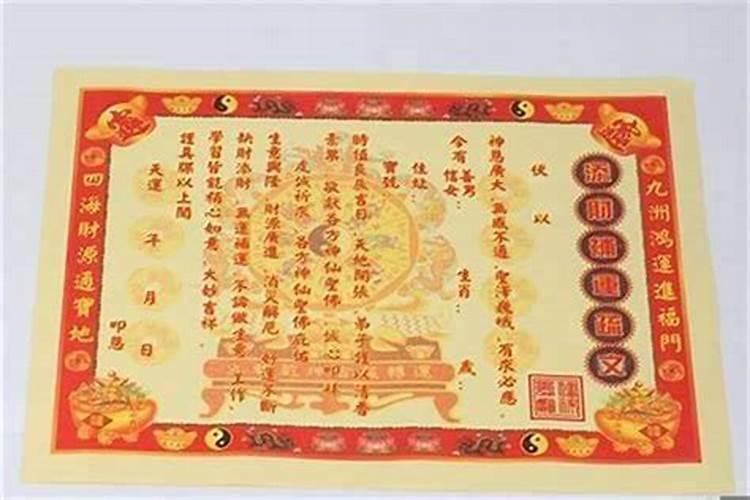 九洲鴻運進福門
添財補運疏文
伏以
神恩廣大 無感不通 聖澤巍峨 有求必應
今有 善男 信女： 生肖： 歲：
住址：
寶號
時值良辰吉日 天地開張 弟子僅以清香
素果 敬獻各方神仙聖佛 誠心叩拜
虔誠祈求 各方神仙聖佛庇佑
生意興隆 財源廣進 消災解厄 好運不斷
缺財添財 無運補運 不論做生意 工作、
學習皆能稱心如意 大妙吉祥
謹具牒以上聞
天運 年 月 日
叩恩
四海財源通寶地